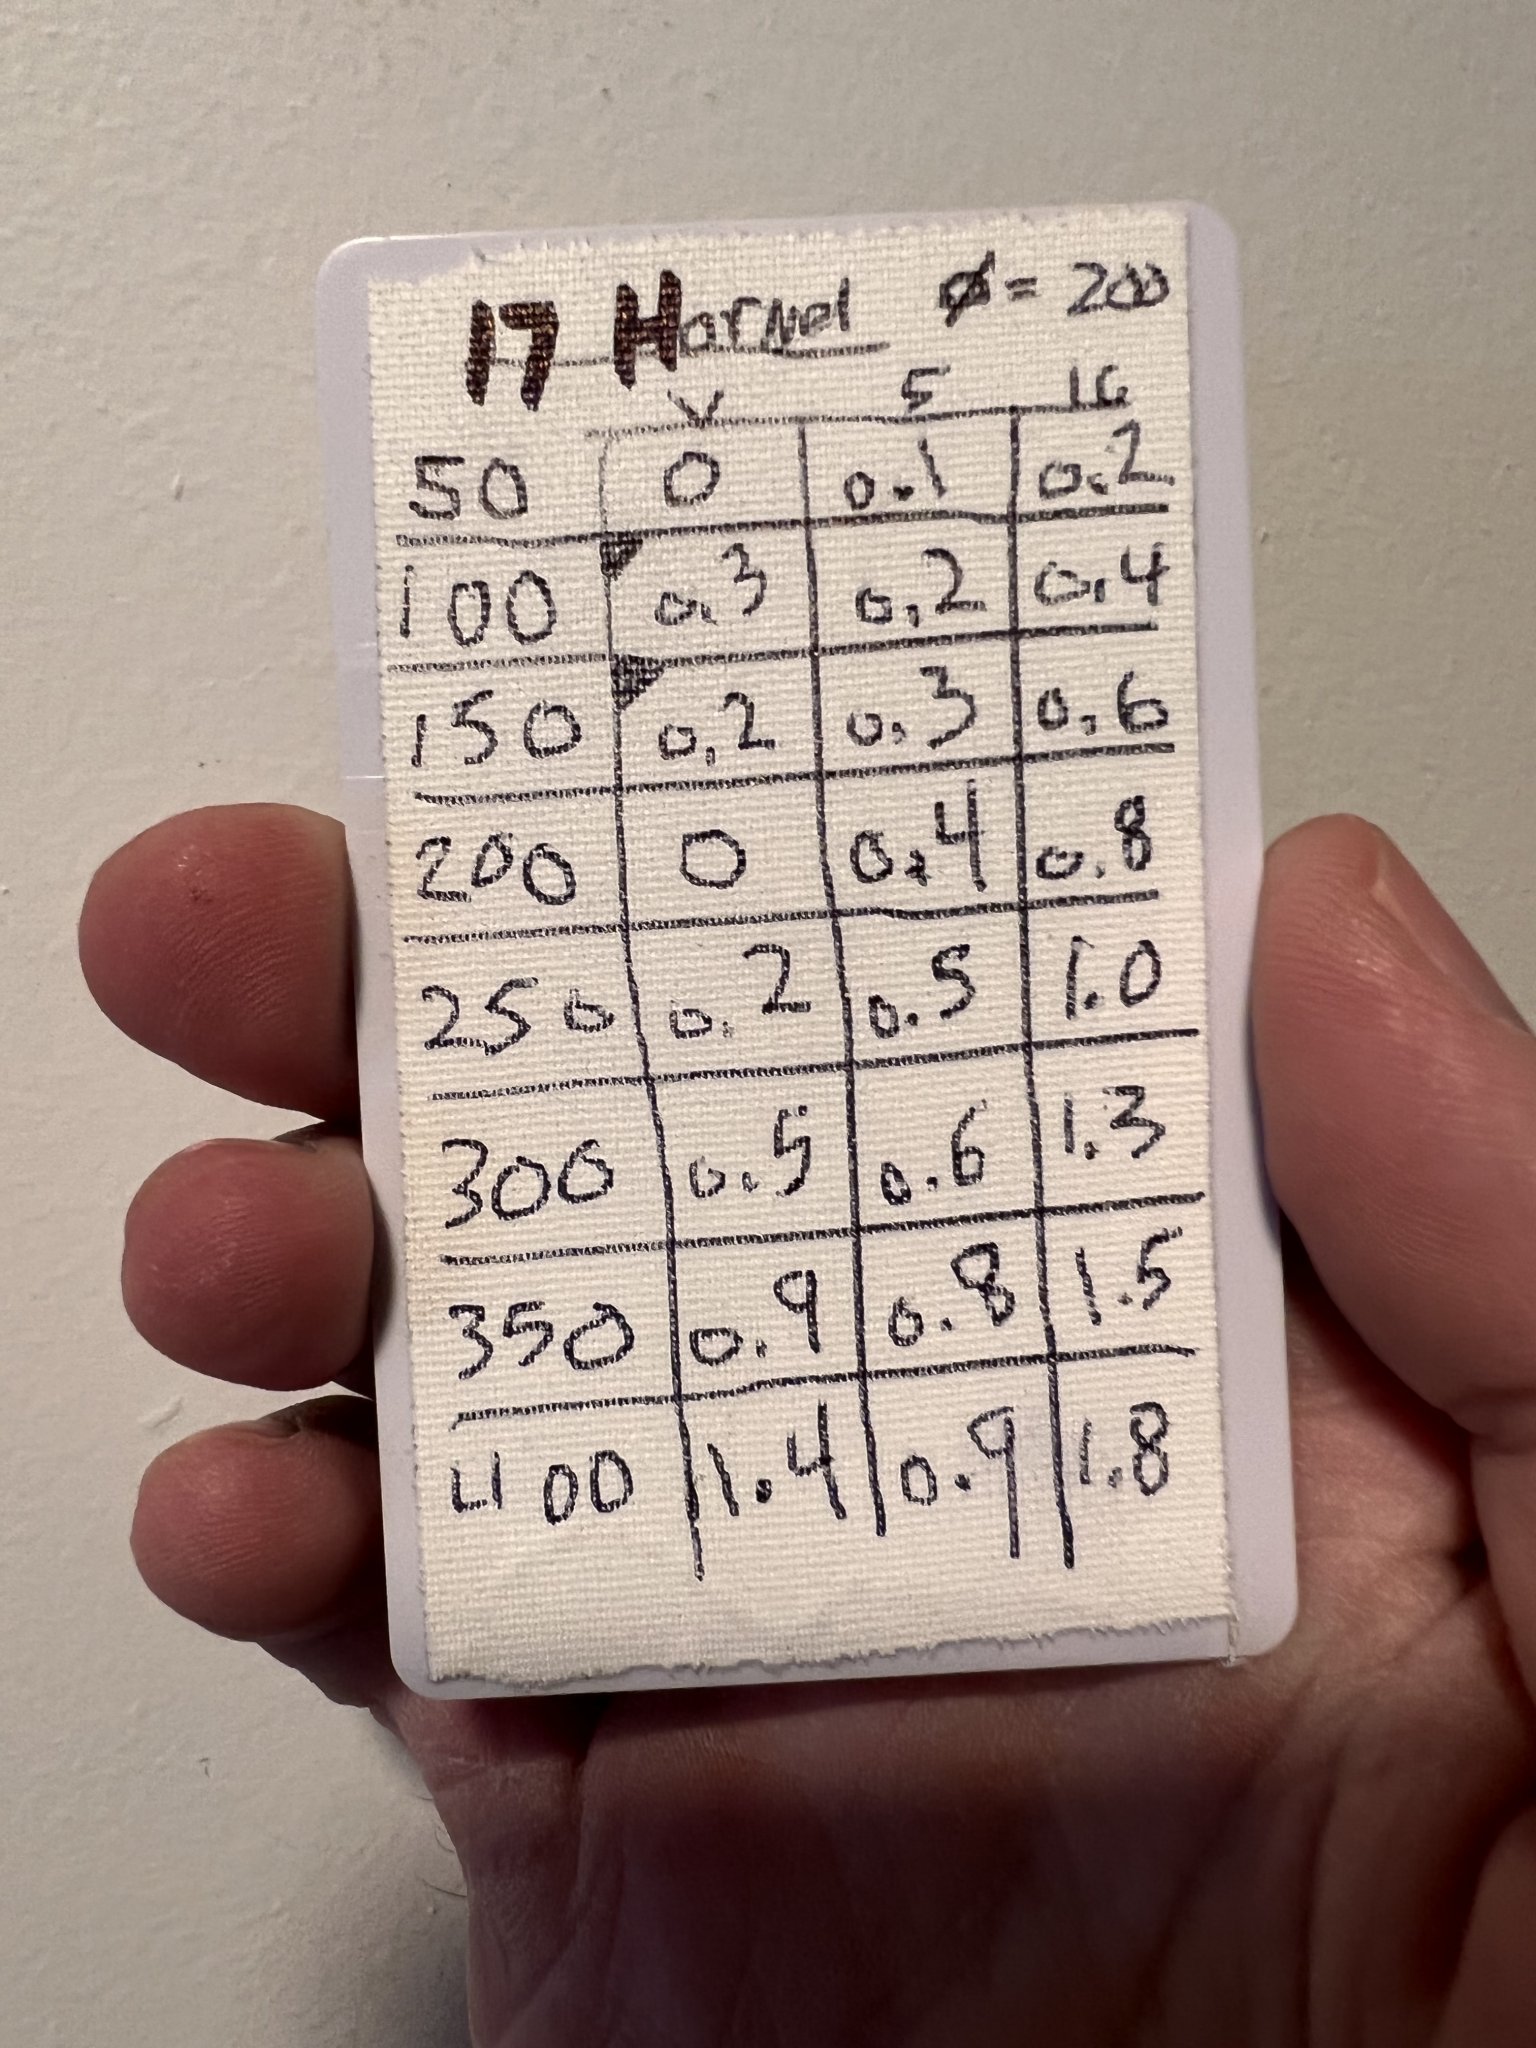 17 Hornet ø = 200
V 5 10
50 0 0.1 0.2
100 0.3 0.2 0.4
150 0.2 0.3 0.6
200 0 0.4 0.8
250 0.2 0.5 1.0
300 0.5 0.6 1.3
350 0.9 0.8 1.5
400 1.4 0.9 1.8